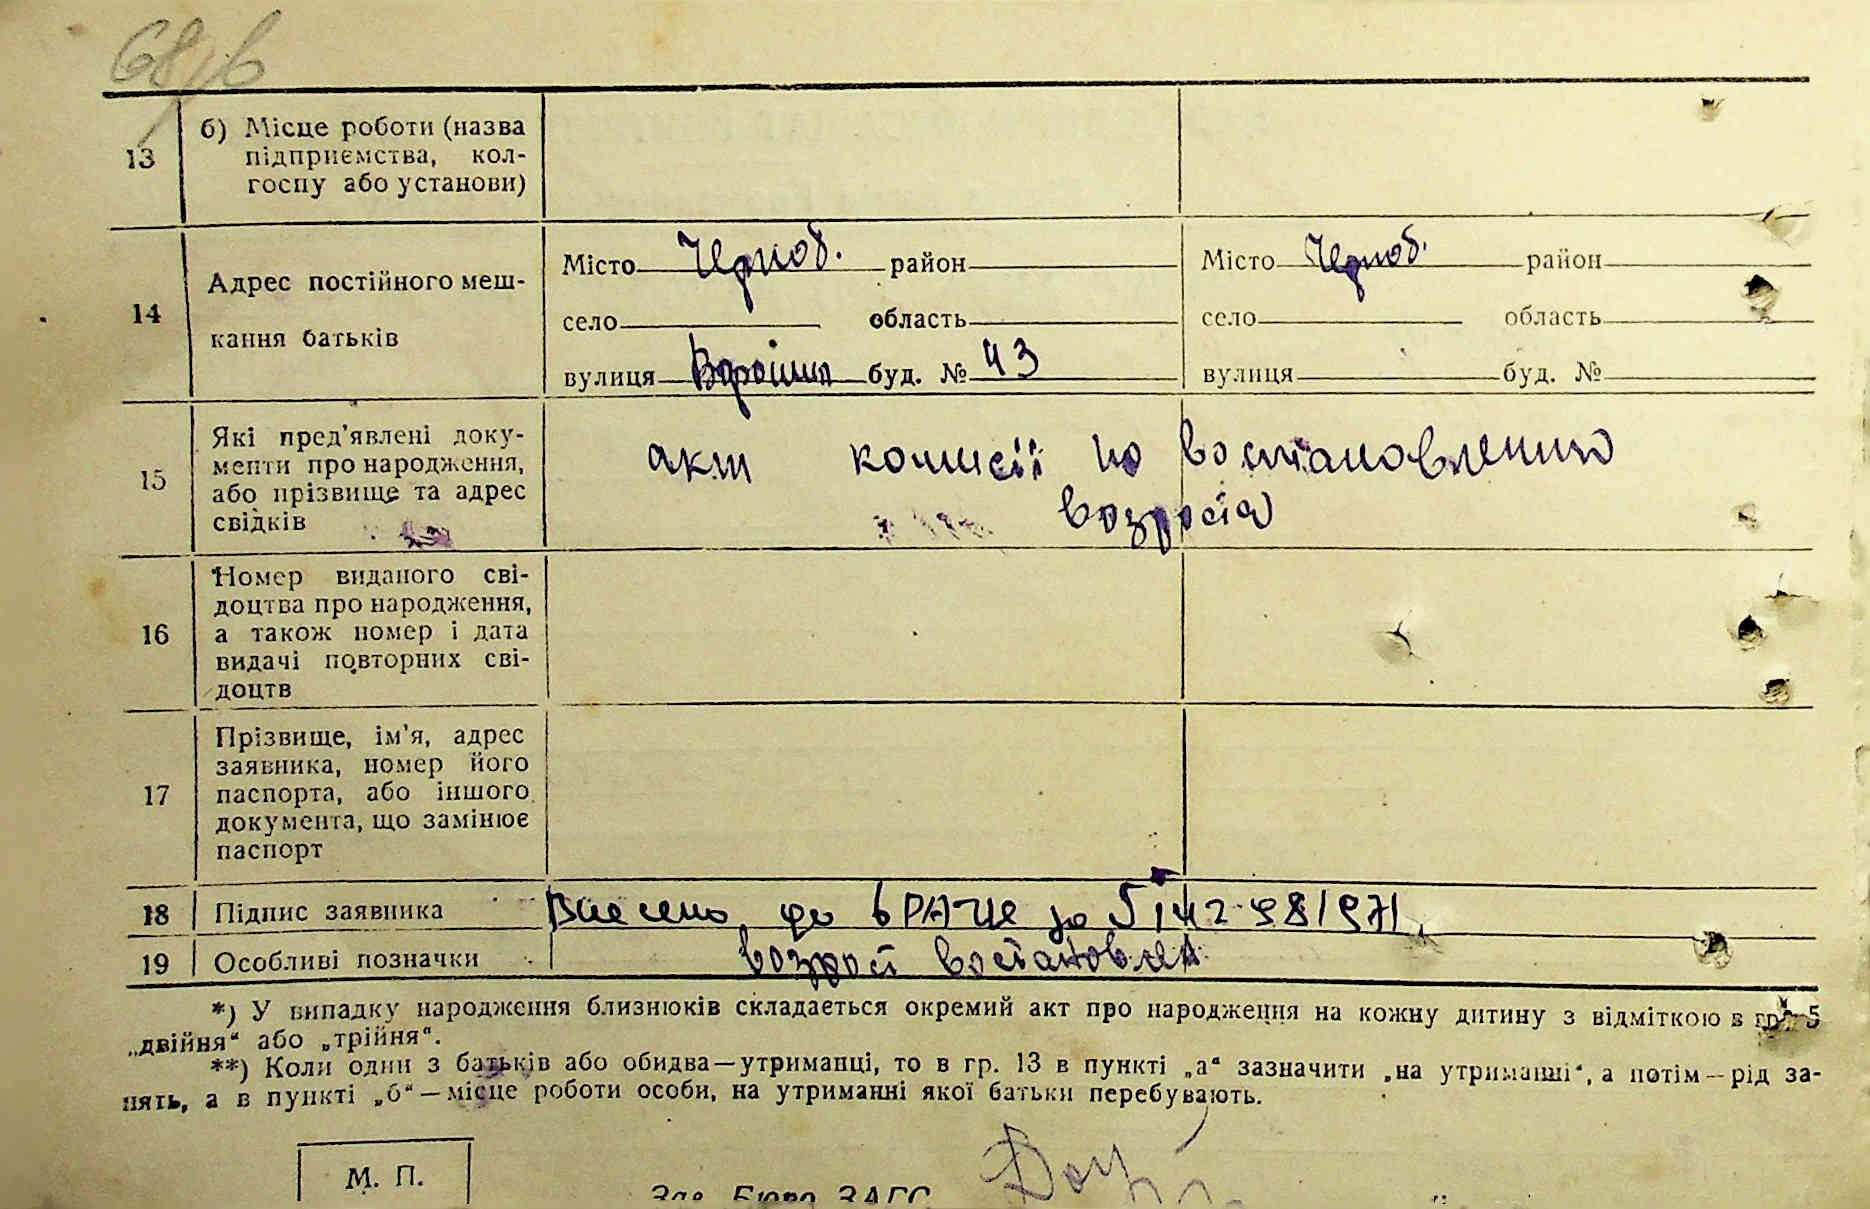 68/6
13
б) Місце роботи (назва
підприємства, кол-
госпу або установи)
14
Адрес постійного меш-
кання батьків
Місто Черноб. район
село область
вулиця Ворошил буд. № 43
Місто Черноб. район
село область
вулиця буд. №
15
Які пред'явлені доку-
менти про народження,
або прізвище та адрес
свідків
акт комисії по востановлению
возроста
16
Номер виданого сві-
доцтва про народження,
а також номер і дата
видачі повторних сві-
доцтв
17
Прізвище, ім'я, адрес
заявника, номер його
паспорта, або іншого
документа, що замінює
паспорт
18
Підпис заявника
Внесено до
19
Особливі позначки
возрост востановлен
*) У випадку народження близнюків складається окремий акт про народження на кожну дитину з відміткою в гр. 5
„двійня“ або „трійня“.
**) Коли один з батьків або обидва—утриманці, то в гр. 13 в пункті „а“ зазначити „на утриманні“, а потім—рід за-
нять, а в пункті „б“—місце роботи особи, на утриманні якої батьки перебувають.
М. П.
Зав. Бюро ЗАГС